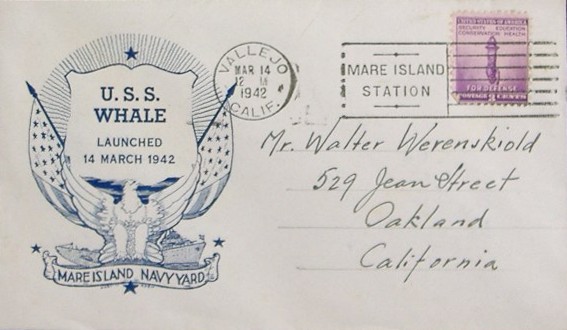 U.S.S.
WHALE
LAUNCHED
14 MARCH 1942
MARE ISLAND NAVY YARD
VALLEJO
MAR 14
12 M
1942
CALIF.
MARE ISLAND
STATION
UNITED STATES OF AMERICA
SECURITY EDUCATION
CONSERVATION HEALTH
FOR DEFENSE
Mr. Walter Werenskiold
529 Jean Street
Oakland
California